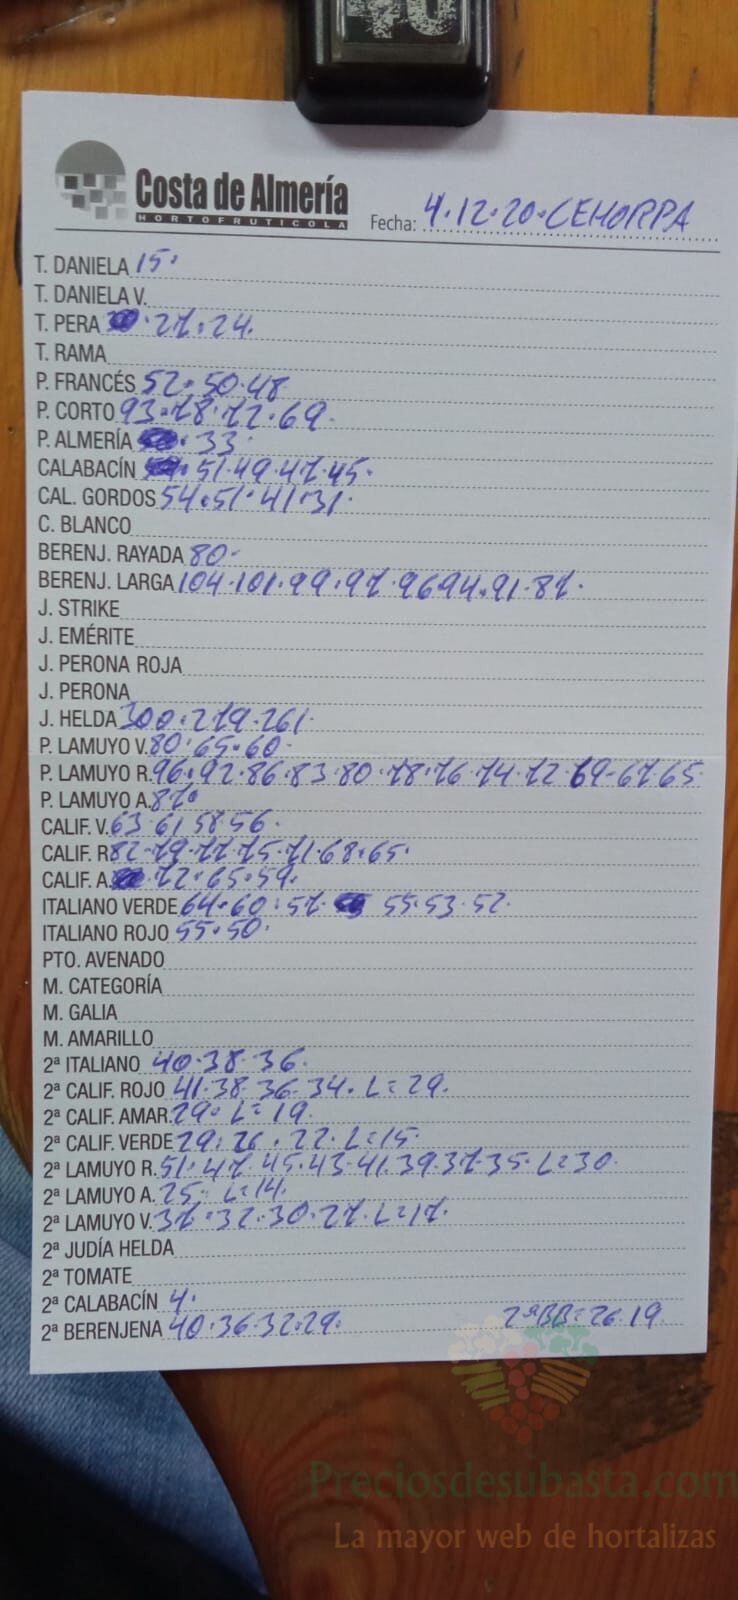 Costa de Almería
HORTOFRUTICOLA
Fecha: 4.12.20.CEHORPA
T. DANIELA 15.
T. DANIELA V.
T. PERA 27.24.
T. RAMA
P. FRANCÉS 52.50.48
P. CORTO 93.78.72.69.
P. ALMERÍA 33.
CALABACÍN 51.49.47.45.
CAL. GORDOS 54.51.41.31.
C. BLANCO
BERENJ. RAYADA 80.
BERENJ. LARGA 104.101.99.97.96 94.91.87.
J. STRIKE
J. EMÉRITE
J. PERONA ROJA
J. PERONA
J. HELDA 300.279.261.
P. LAMUYO V. 80.65.60.
P. LAMUYO R. 96.92.86.83.80.78.76.74.72.69-67.65.
P. LAMUYO A. 87.
CALIF. V. 63 61 58 56.
CALIF. R. 82.79.77.75.71.68.65.
CALIF. A. 72.65.59.
ITALIANO VERDE 64.60.57. 55.53.52.
ITALIANO ROJO 55.50.
PTO. AVENADO
M. CATEGORÍA
M. GALIA
M. AMARILLO
2ª ITALIANO 40.38.36.
2ª CALIF. ROJO 41.38.36.34. L=29.
2ª CALIF. AMAR. 29. L=19.
2ª CALIF. VERDE 29.26.22. L=15.
2ª LAMUYO R. 51.47.45.43.41.39.37.35. L=30.
2ª LAMUYO A. 25. L=14.
2ª LAMUYO V. 37.32.30.27. L=17.
2ª JUDÍA HELDA
2ª TOMATE
2ª CALABACÍN 4.
2ª BERENJENA 40.36.32.29. 2ªBB=26.19.
Preciosdesubasta.com
La mayor web de hortalizas